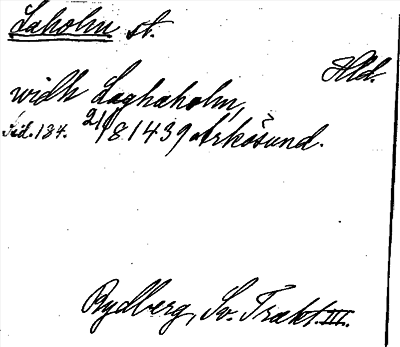 Laholm st.
Hld.
widh Laghaholm,
sid. 134. 21/8 1439 Arkösund.
Rydberg, Sv. Trakt. III.